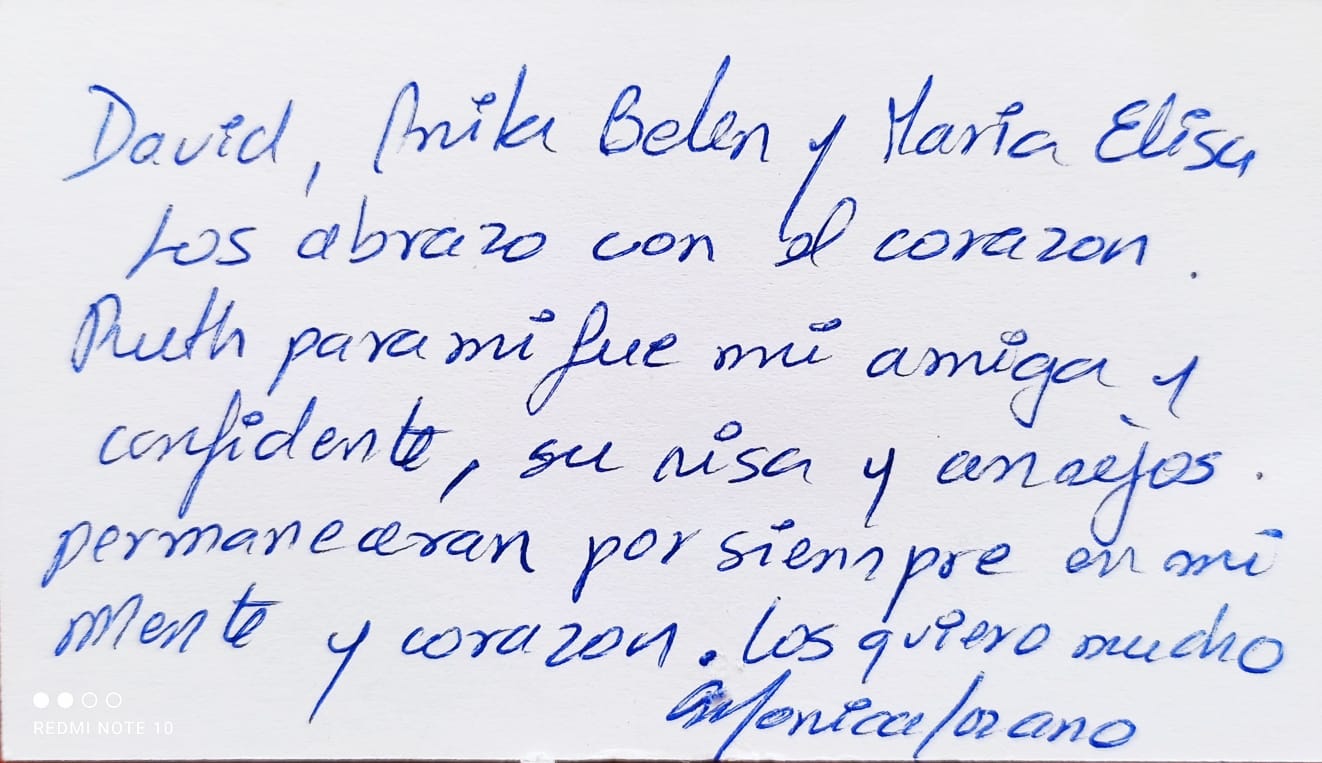 David, Anika Belen y Maria Elisa
Los abrazo con el corazon.
Ruth para mi fue mi amiga y
confidente, su risa y consejos.
permaneceran por siempre en mi
mente y corazon. Los quiero mucho
Monica Lozano
REDMI NOTE 10